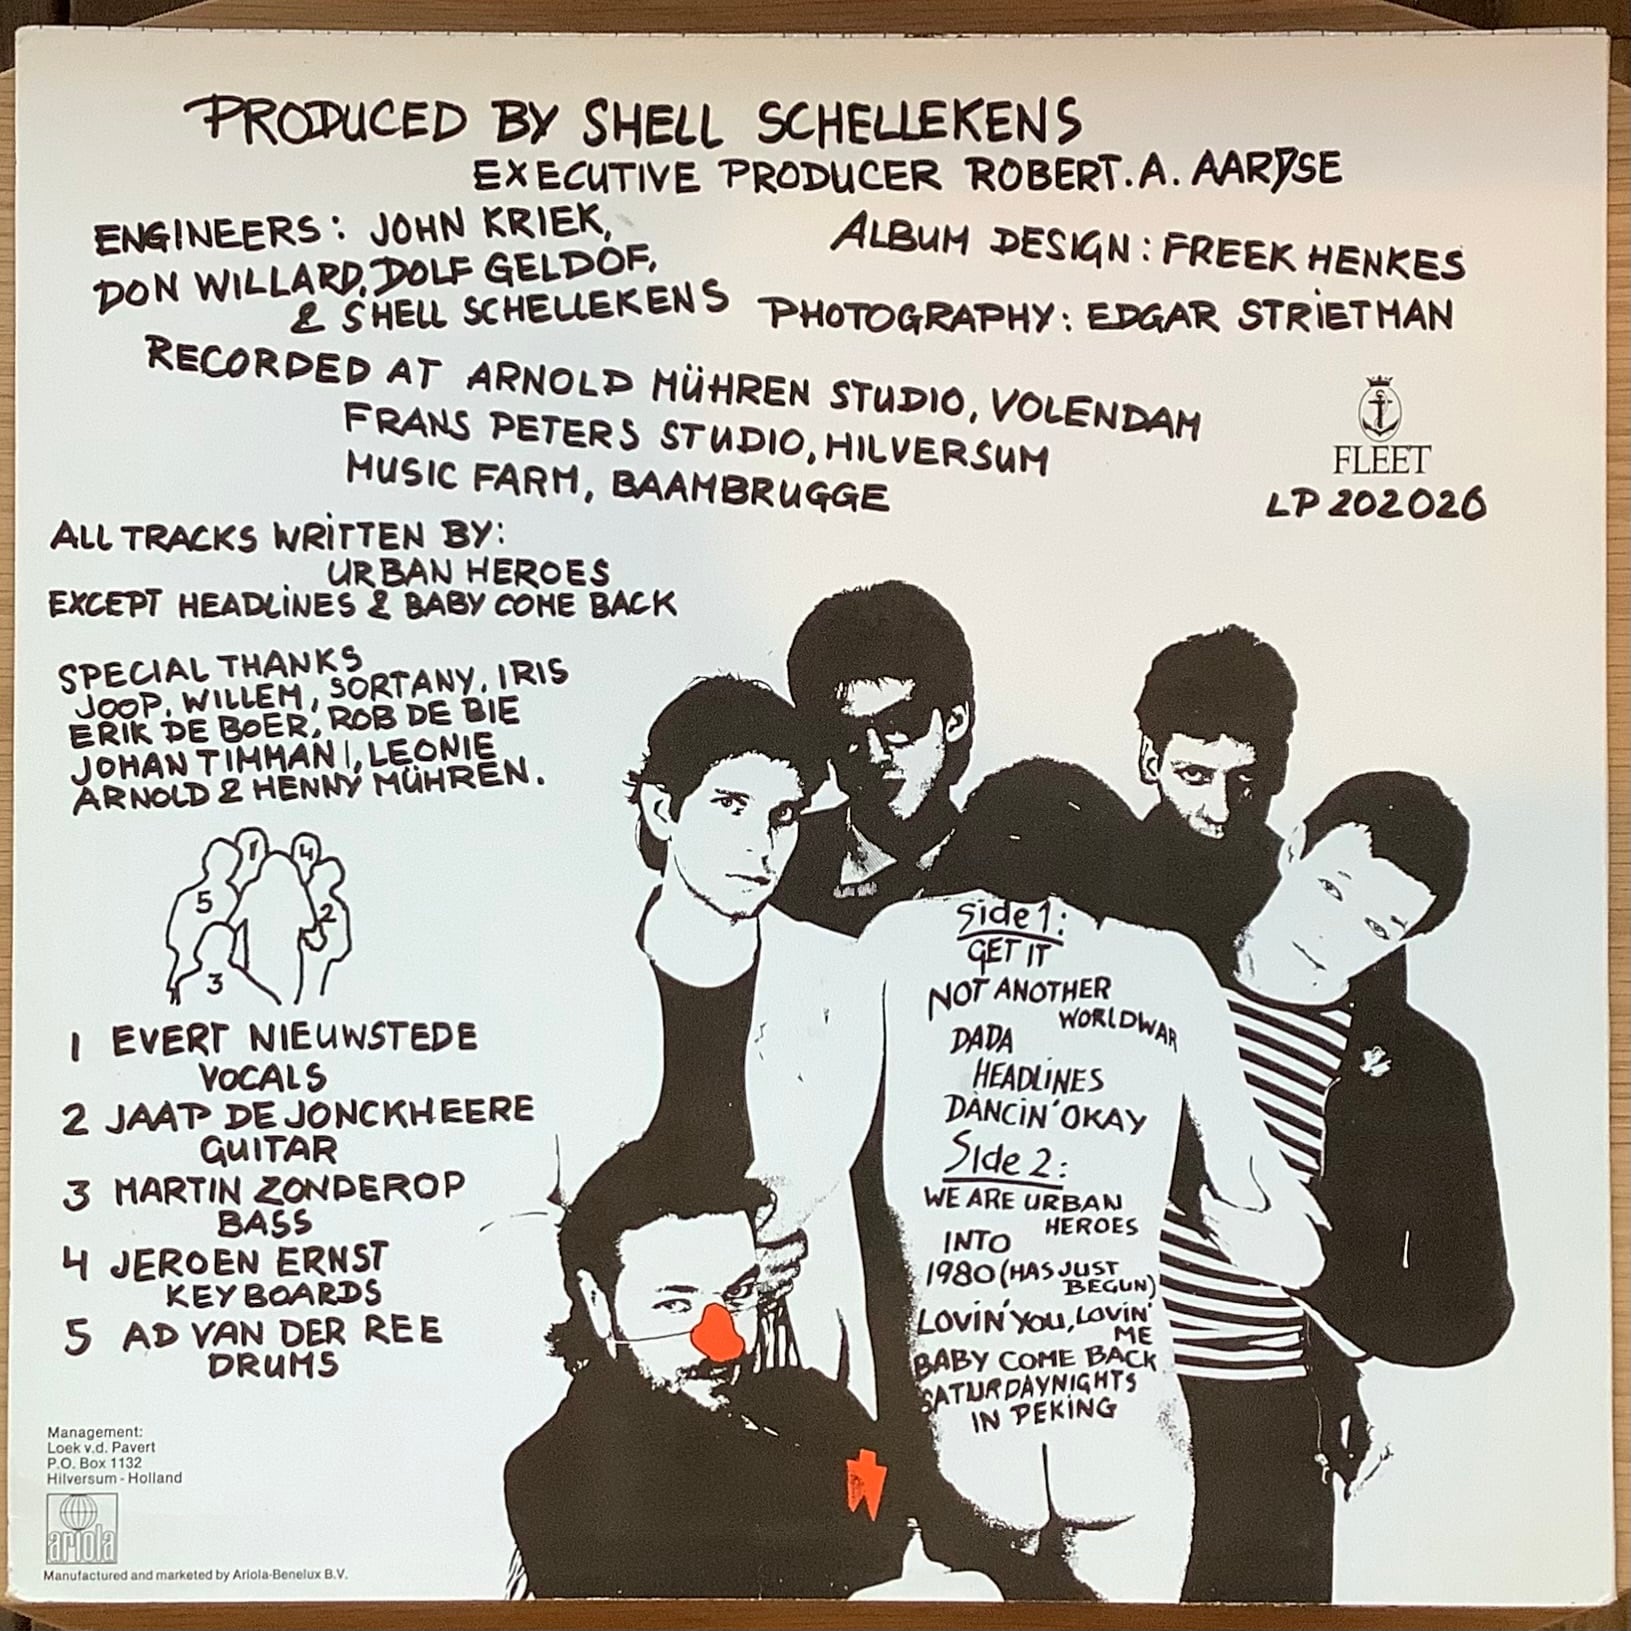 PRODUCED BY SHELL SCHELLEKENS
EXECUTIVE PRODUCER ROBERT. A. AARYSE
ENGINEERS: JOHN KRIEK,
DON WILLARD, DOLF GELDOF,
& SHELL SCHELLEKENS
ALBUM DESIGN: FREEK HENKES
PHOTOGRAPHY: EDGAR STRIETMAN
RECORDED AT ARNOLD MÜHREN STUDIO, VOLENDAM
FRANS PETERS STUDIO, HILVERSUM
MUSIC FARM, BAAMBRUGGE
FLEET
LP 202026
ALL TRACKS WRITTEN BY:
URBAN HEROES
EXCEPT HEADLINES & BABY COME BACK
SPECIAL THANKS
JOOP, WILLEM, SORTANY, IRIS
ERIK DE BOER, ROB DE BIE
JOHAN TIMMAN, LEONIE
ARNOLD & HENNY MÜHREN.
1
4
5
2
3
1 EVERT NIEUWSTEDE
VOCALS
2 JAAP DE JONCKHEERE
GUITAR
3 MARTIN ZONDEROP
BASS
4 JEROEN ERNST
KEYBOARDS
5 AD VAN DER REE
DRUMS
Side 1:
GET IT
NOT ANOTHER
WORLDWAR
DADA
HEADLINES
DANCIN' OKAY
Side 2:
WE ARE URBAN
HEROES
INTO
1980 (HAS JUST
BEGUN)
LOVIN' YOU, LOVIN'
ME
BABY COME BACK
SATURDAYNIGHTS
IN PEKING
Management:
Loek v.d. Pavert
P.O. Box 1132
Hilversum - Holland
ariola
Manufactured and marketed by Ariola-Benelux B.V.